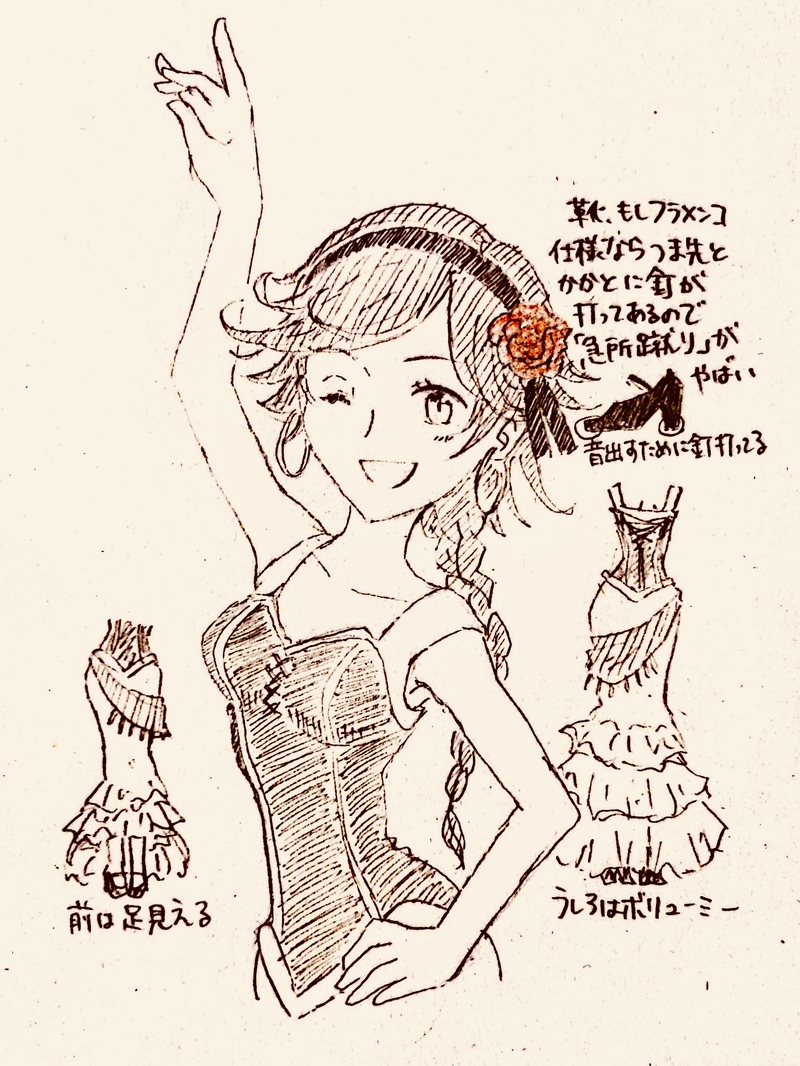 靴、もしフラメンコ
仕様ならつま先と
かかとに釘が
打ってあるので
「急所蹴り」が
やばい
音出すために釘打ってる
前は足見える
うしろはボリューミー